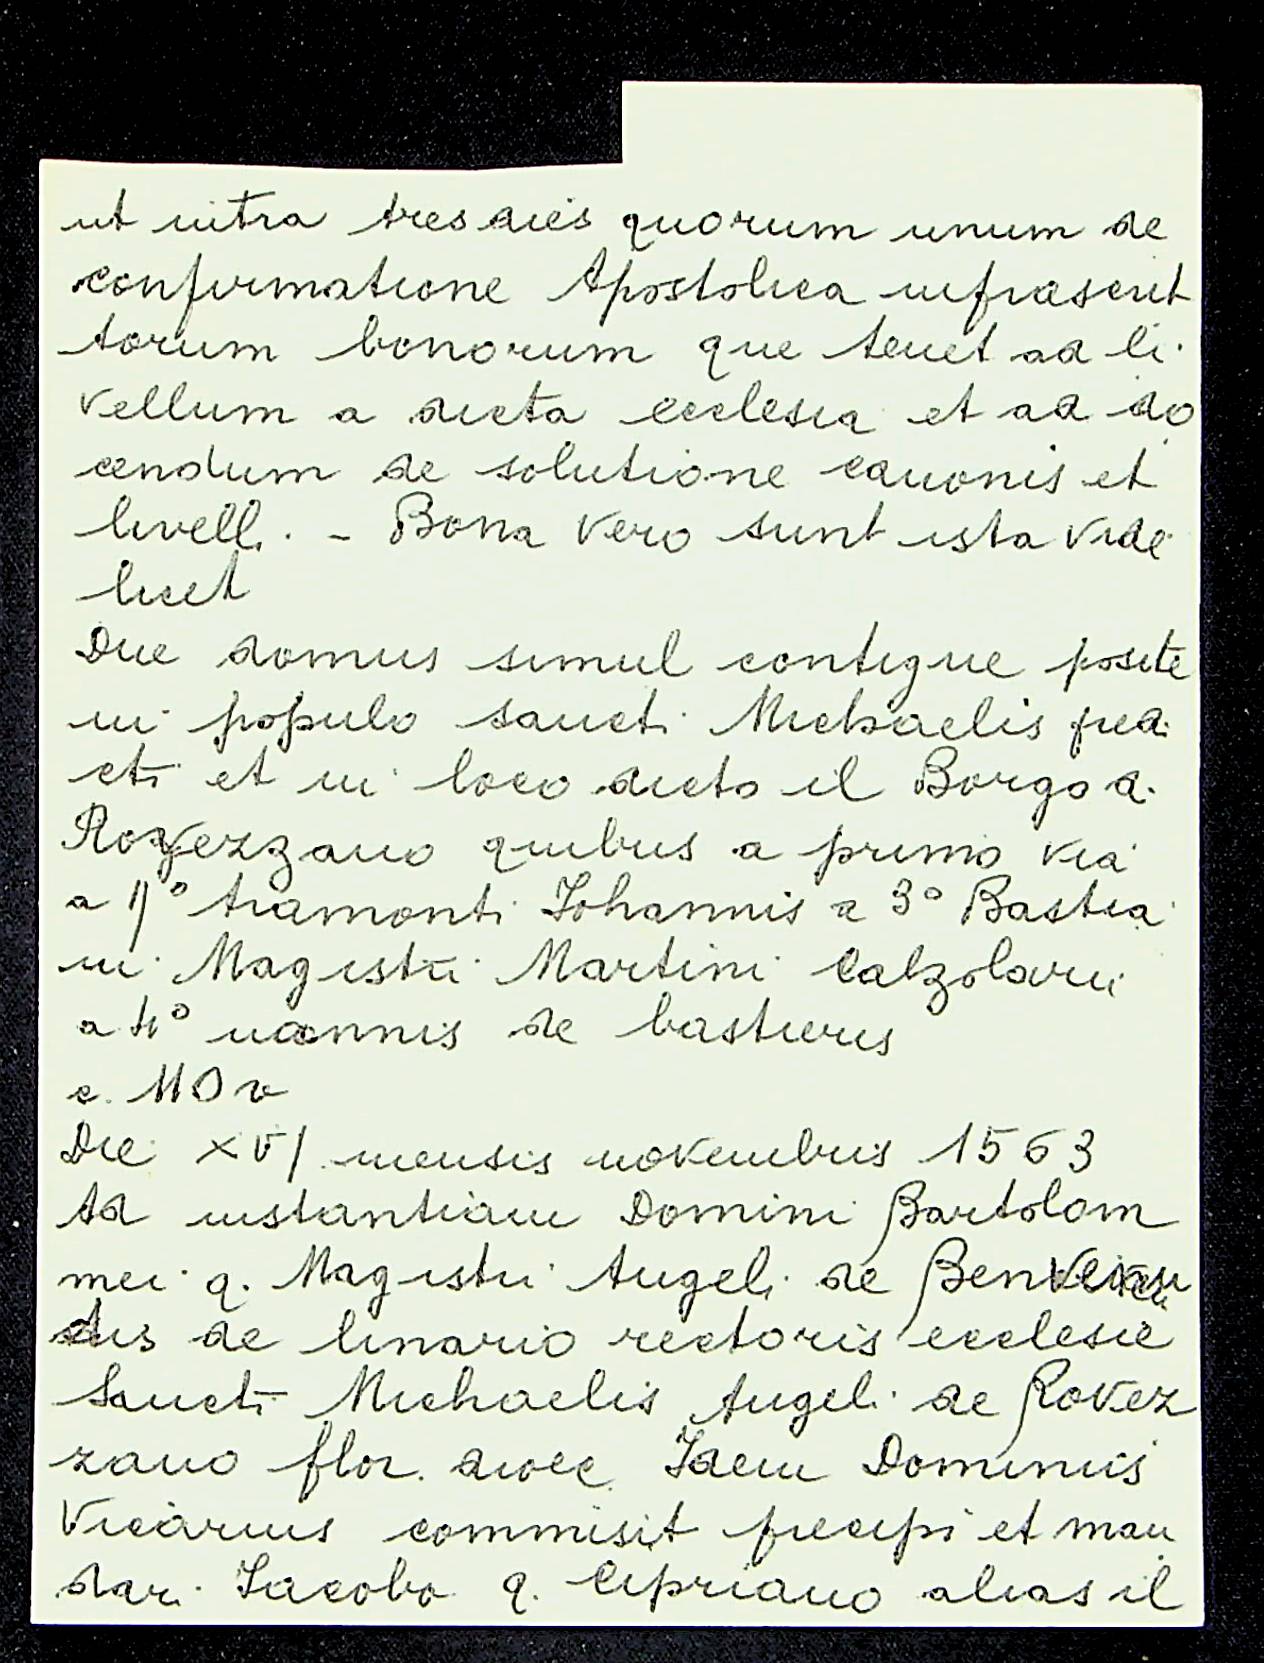 ut intra tres dies quorum unum de
confirmatione Apostolica infrascrit
torum bonorum que tenet ad li
vellum a dicta ecclesia et ad do
cendum de solutione canonis et
livelli. - Bona vero sunt ista vide
licet
Due domus simul contigue posite
in populo sancti Michaelis pred
cti et in loco dicto il Borgo a
Rovezzano quibus a primo via
a II° tramonti Johannis a 3° Bastia
ni Magistri Martini Calzolarii
a 4° Joannis de bastieris
c. 110 v
Die XVI mensis novembris 1563
Ad instantiam Domini Bartolom
mei q. Magistri Angeli de
de linario rectoris ecclesie
Sancti Michaelis Angeli de Rovez
zano flor. dioec. Idem Dominus
Vicarius commisit precipi et man
dari Jacobo q. Cipriano alias il